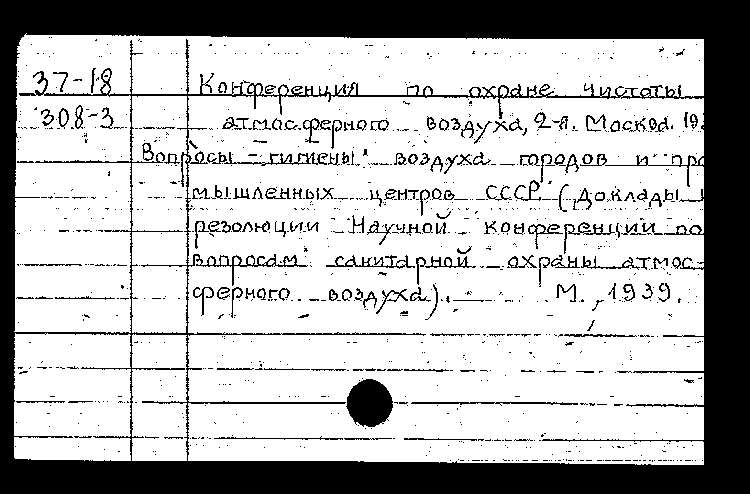 37-18 Конференция по охране чистоты
308-3 атмосферного воздуха, 2-я. Москва. 19
Вопросы гигиены воздуха городов и про
мышленных центров СССР. (Доклады и
резолюции Научной конференции по
вопросам санитарной охраны атмос-
ферного воздуха). М., 1939.